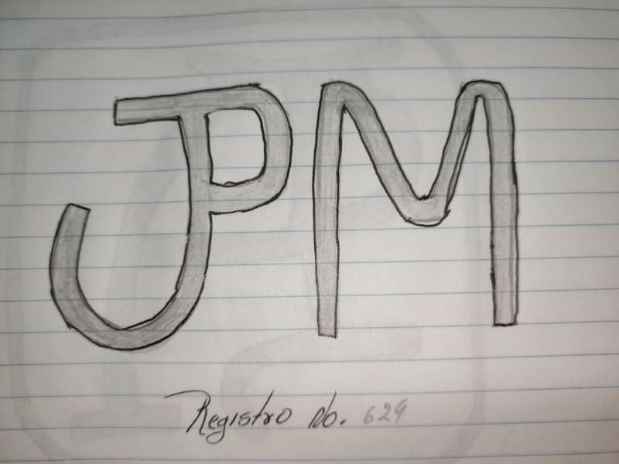 JPM
Registro No. 629